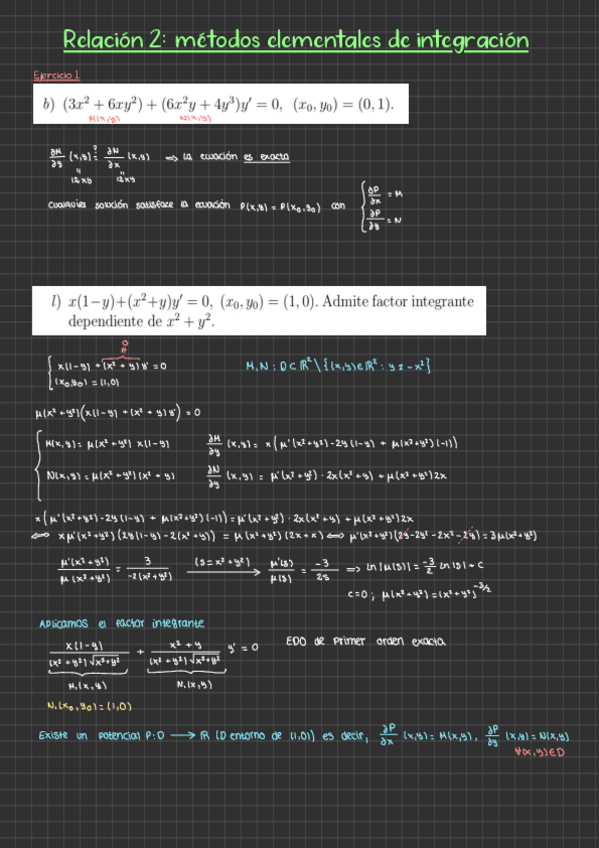 Relación 2: métodos elementales de integración
Ejercicio 1
b) (3x² + 6xy²) + (6x²y + 4y³)y' = 0, (x₀, y₀) = (0, 1).
M(x,y) N(x,y)
∂M/∂y (x,y) =? ∂N/∂x (x,y) ⇒ La ecuación es exacta
12xy 12xy
Cualquier solución satisface la ecuación P(x,y) = P(x₀,y₀) con { ∂P/∂x = M
∂P/∂y = N
l) x(1−y)+(x²+y)y' = 0, (x₀, y₀) = (1, 0). Admite factor integrante
dependiente de x² + y².
0
{ x(1-y) + (x² + y)y' = 0 M,N: D⊂ℝ² \ {(x,y)∈ℝ² : y ≠ -x²}
(x₀,y₀) = (1,0)
μ(x² + y²)(x(1-y) + (x² + y)y') = 0
{ M(x,y) = μ(x² + y²) x(1-y) ∂M/∂y (x,y) = x(μ'(x²+y²)·2y(1-y) + μ(x²+y²)(-1))
N(x,y) = μ(x² + y²)(x² + y) ∂N/∂y (x,y) = μ'(x² + y²) · 2x(x² + y) + μ(x² + y²)2x
x(μ'(x² + y²)·2y(1-y) + μ(x²+y²)(-1)) = μ'(x² + y²) · 2x(x² + y) + μ(x² + y²)2x
⟺ xμ'(x² + y²)(2y(1-y) - 2(x² + y)) = μ(x² + y²)(2x + x) ⟺ μ'(x² + y²)(2y - 2y² - 2x² - 2y) = 3μ(x² + y²)
μ'(x² + y²)/μ(x² + y²) = 3/-2(x² + y²) (s = x² + y²) ⟶ μ'(s)/μ(s) = -3/2s ⇒ ln|μ(s)| = -3/2 ln|s| + C
C=0; μ(x² + y²) = (x² + y²)^(-3/2)
Aplicamos el factor integrante
x(1-y)/(x² + y²)√x²+y² + x² + y/(x² + y²)√x²+y² y' = 0 EDO de primer orden exacta
M₁(x,y) N₁(x,y)
N₁(x₀,y₀) = (1,0)
Existe un potencial P: D ⟶ ℝ (D entorno de (1,0)) es decir, ∂P/∂x (x,y) = M(x,y), ∂P/∂y (x,y) = N(x,y)
∀(x,y)∈D